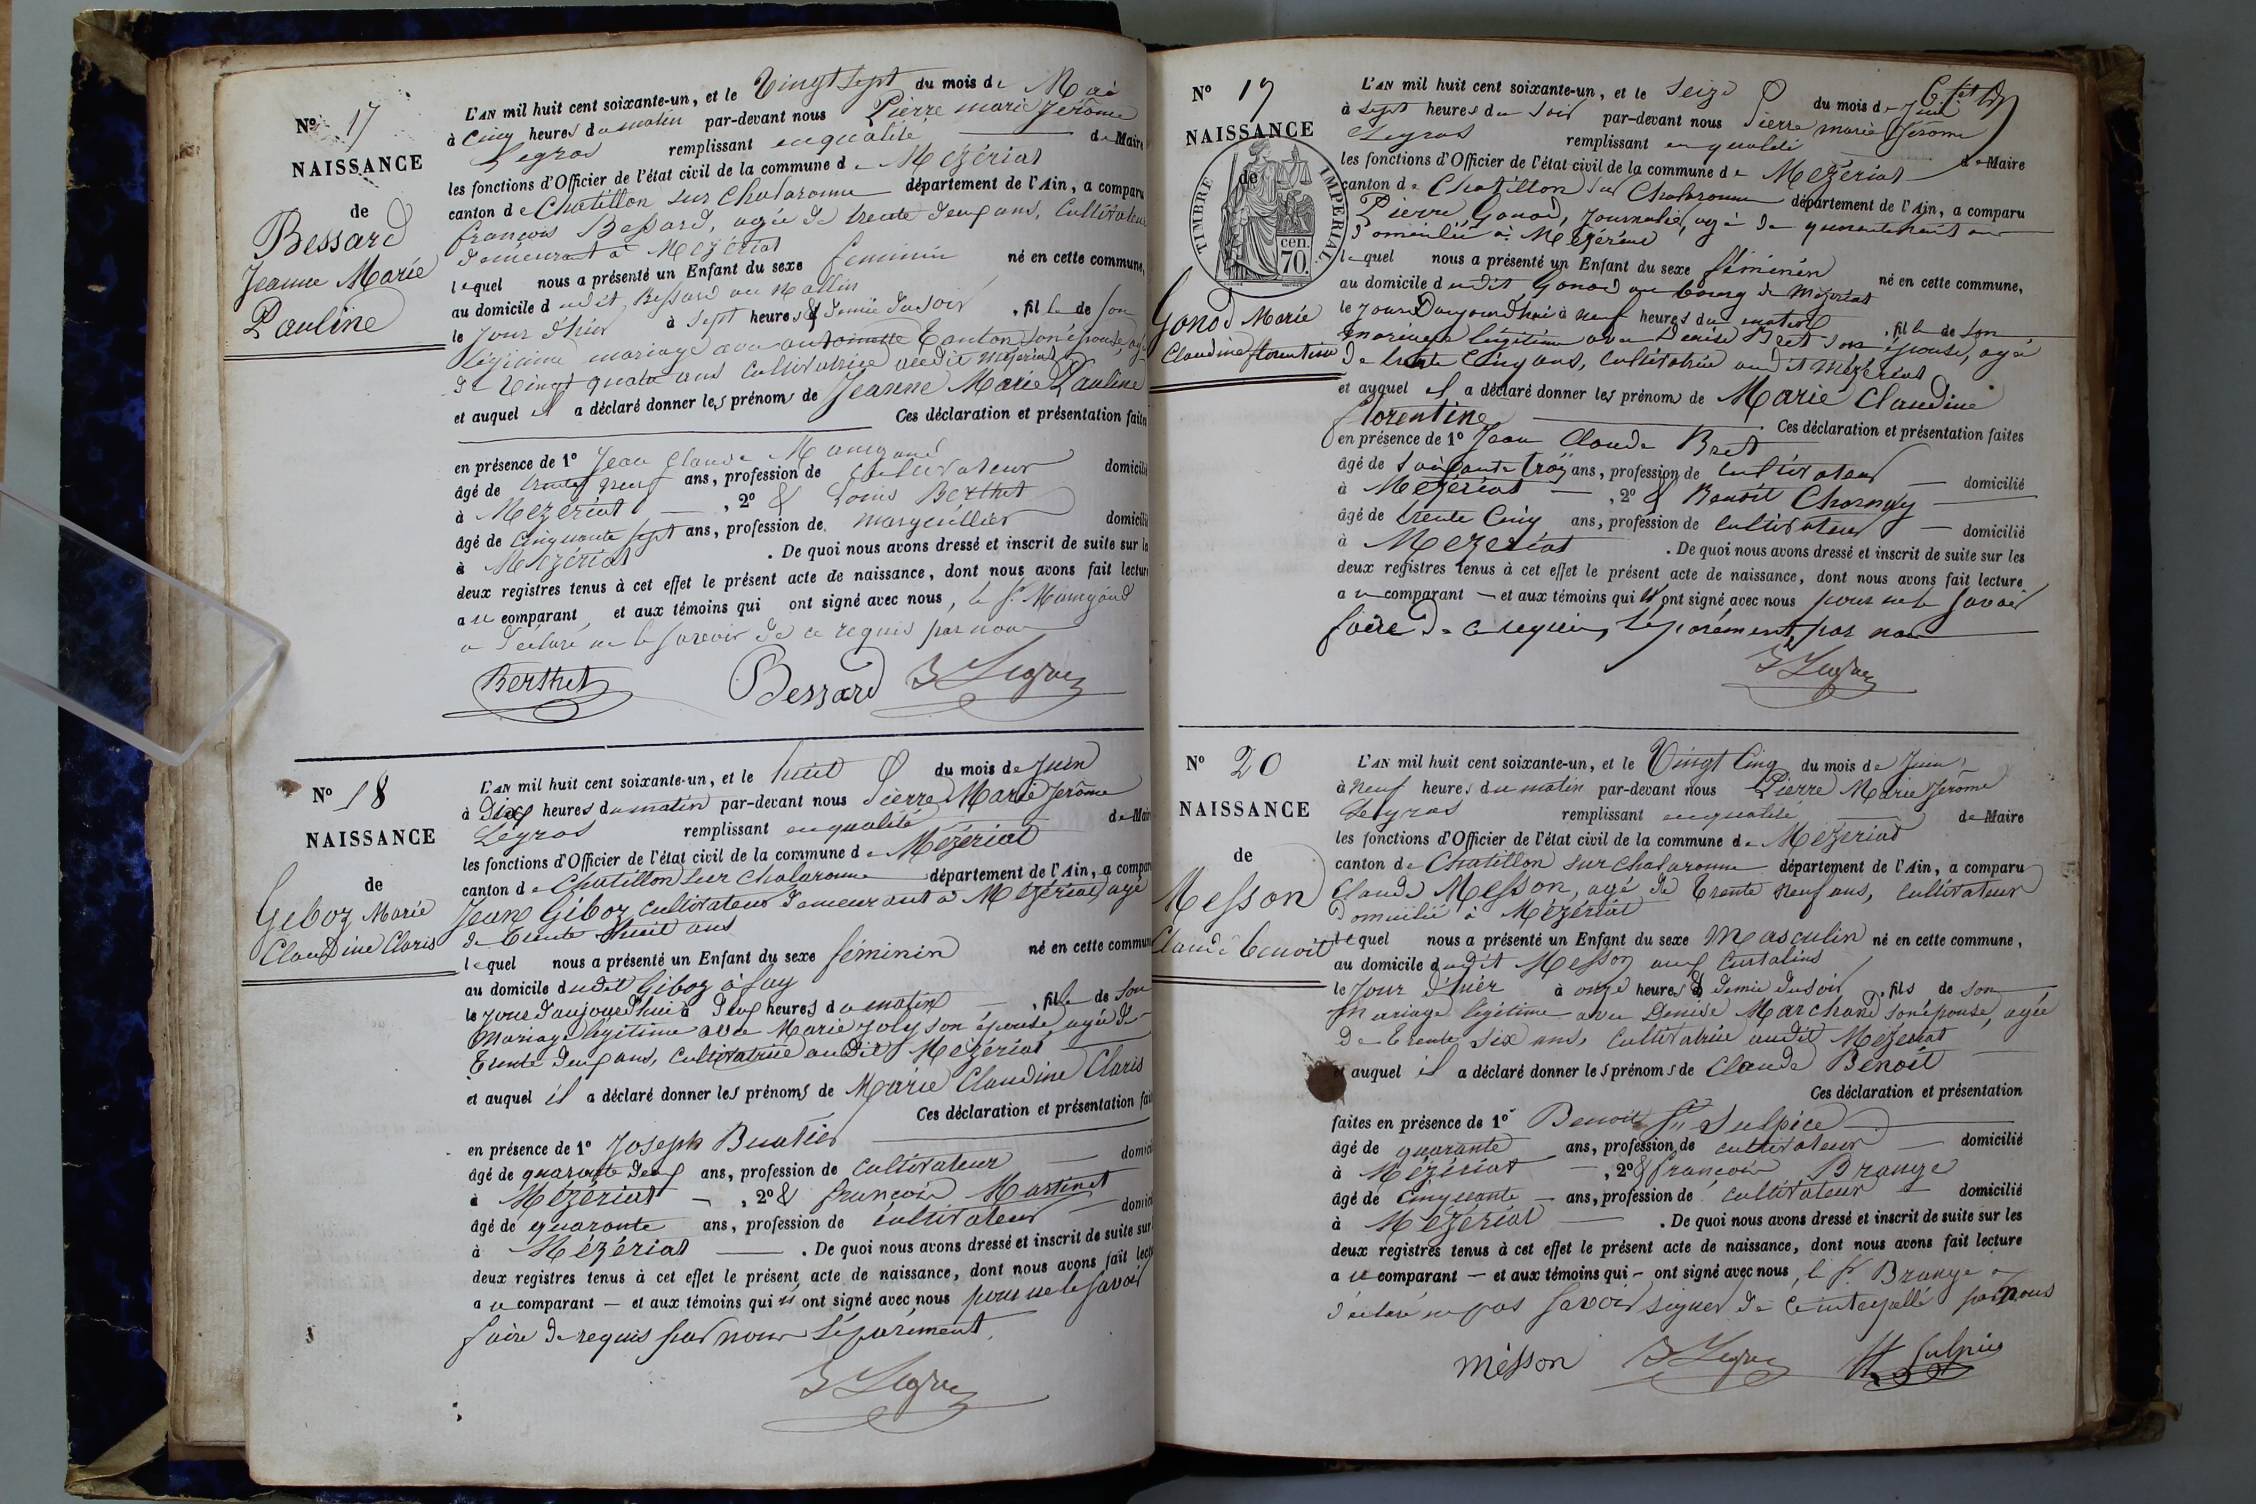 N° 17
NAISSANCE
de
Bessard
Jeanne Marie
Pauline
L'AN mil huit cent soixante-un, et le Vingt sept du mois de Mai
à Cinq heures du matin par-devant nous Pierre marie Jérôme
Legros remplissant en qualité de Maire
les fonctions d'Officier de l'état civil de la commune de Mézériat
canton de Chatillon sur Chalaronne département de l'Ain, a comparu
françois Bessard, agée de trente deux ans, Cultivateur
demeurant à Mézériat
lequel nous a présenté un Enfant du sexe feminin né en cette commune,
au domicile dudit Bessard au Mollin
le Jour d'hier à Sept heures & demie du soir, fille de son
légitime mariage avec antoinette Tanton son épouse, agée
de Vingt quatre ans cultivatrice audit Mézériat
et auquel il a déclaré donner les prénoms de Jeanne Marie Pauline
Ces déclaration et présentation faites
en présence de 1° Jean Claude Maingand
âgé de trente neuf ans, profession de Cultivateur domicilié
à Mézériat, 2° & Louis Berthet
âgé de Cinquante sept ans, profession de marguillier domicilié
à Mézériat. De quoi nous avons dressé et inscrit de suite sur la
deux registres tenus à cet effet le présent acte de naissance, dont nous avons fait lecture
au comparant et aux témoins qui ont signé avec nous, le s. Maingand
a déclaré ne le savoir de ce requis par nous
Berthet Bessard J Legros
N° 18
NAISSANCE
de
Geboz Marie
Claudine Claris
L'AN mil huit cent soixante-un, et le huit du mois de Juin
à Dix heures du matin par-devant nous Pierre Marie Jérôme
Legros remplissant en qualité de Maire
les fonctions d'Officier de l'état civil de la commune de Mézériat
canton de Chatillon sur Chalaronne département de l'Ain, a comparu
Jean Géboz cultivateur demeurant à Mézériat, agé
de trente huit ans
lequel nous a présenté un Enfant du sexe féminin né en cette commune
au domicile dudit Géboz à fay
le jour d'aujourd'hui à deux heures du matin, fille de son
Mariage légitime avec Marie Joly son épouse, agée de
trente deux ans, cultivatrice audit Mézériat
et auquel il a déclaré donner les prénoms de Marie Claudine Claris
Ces déclaration et présentation fai
en présence de 1° Joseph Buatier
âgé de quarante deux ans, profession de cultivateur domici
à Mézériat, 2° & françois Martinet
âgé de quarante ans, profession de cultivateur domici
à Mézériat. De quoi nous avons dressé et inscrit de suite sur
deux registres tenus à cet effet le présent acte de naissance, dont nous avons fait lect
au comparant et aux témoins qui n' ont signé avec nous pour ne le savoir
faire de requis par nous séparément.
J Legros
N° 19
NAISSANCE
de
TIMBRE IMPERIAL
cen.
70.
Gonod Marie
Claudine florentine
L'AN mil huit cent soixante-un, et le Seize du mois de Juin
à sept heures du soir par-devant nous Pierre marie Jérôme
Legros remplissant en qualité de Maire
les fonctions d'Officier de l'état civil de la commune de Mézériat
canton de Chatillon sur Chalaronne département de l'Ain, a comparu
Pierre Gonod, Journalier, agé de quarante huit ans
domicilié à Mézériat
lequel nous a présenté un Enfant du sexe féminin né en cette commune,
au domicile dudit Gonod au bourg de Mézériat
le Jour D'aujourd'hui à neuf heures du matin, fille de son
mariage légitime avec Denise Bret son épouse, agé
de trente Cinq ans, cultivatrice audit Mézériat
et auquel il a déclaré donner les prénoms de Marie Claudine
florentine Ces déclaration et présentation faites
en présence de 1° Jean Claude Bret
âgé de soixante trois ans, profession de cultivateur domicilié
à Mézériat, 2° & Benoit Charnay
âgé de trente Cinq ans, profession de cultivateur domicilié
à Mézériat. De quoi nous avons dressé et inscrit de suite sur les
deux registres tenus à cet effet le présent acte de naissance, dont nous avons fait lecture
au comparant et aux témoins qui n' ont signé avec nous pour ne le savoir
faire de ce requis, séparément, par nous
J Legros
N° 20
NAISSANCE
de
Messon
Claude benoit
L'AN mil huit cent soixante-un, et le Vingt Cinq du mois de Juin,
à neuf heures du matin par-devant nous Pierre Marie Jérôme
Legros remplissant en qualité de Maire
les fonctions d'Officier de l'état civil de la commune de Mézériat
canton de Chatillon sur Chalaronne département de l'Ain, a comparu
Claude Messon, agé de trente neuf ans, cultivateur
domicilié à Mézériat
lequel nous a présenté un Enfant du sexe Masculin né en cette commune,
au domicile dudit Messon aux Curtalins
le Jour d'hier à onze heures & demie du soir, fils de son
mariage légitime avec Denise Marchand son épouse, agée
de trente six ans, cultivatrice audit Mézériat
et auquel il a déclaré donner les prénoms de Claude Benoit
Ces déclaration et présentation
faites en présence de 1° Benoit St Sulpice
âgé de quarante ans, profession de cultivateur domicilié
à Mézériat, 2° & françois Brange
âgé de Cinquante ans, profession de cultivateur domicilié
à Mézériat. De quoi nous avons dressé et inscrit de suite sur les
deux registres tenus à cet effet le présent acte de naissance, dont nous avons fait lecture
au comparant et aux témoins qui ont signé avec nous, le sr Brange a
déclaré ne pas savoir signer de ce interpellé par nous
Messon J Legros St Sulpice